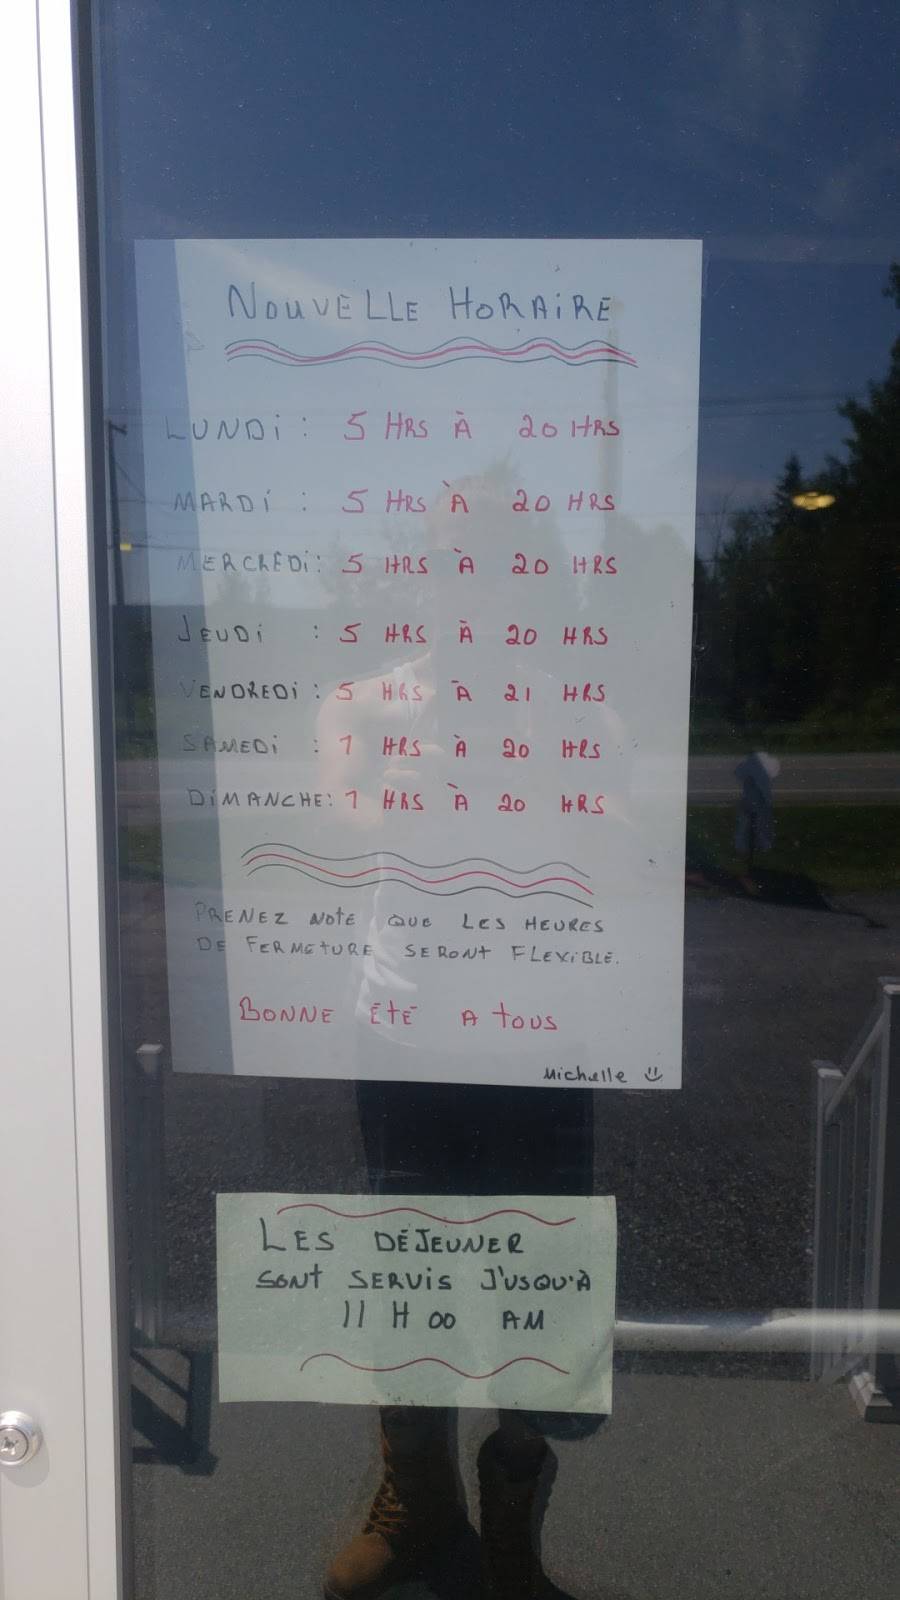 NOUVELLE HORAIRE
LUNDI : 5 HRS À 20 HRS
MARDI : 5 HRS À 20 HRS
MERCREDI : 5 HRS À 20 HRS
JEUDI : 5 HRS À 20 HRS
VENDREDI : 5 HRS À 21 HRS
SAMEDI : 7 HRS À 20 HRS
DIMANCHE : 7 HRS À 20 HRS
PRENEZ NOTE QUE LES HEURES
DE FERMETURE SERONT FLEXIBLE.
BONNE ÉTÉ A TOUS
Michelle
LES DÉJEUNER
SONT SERVIS J'USQU'À
11 H 00 AM